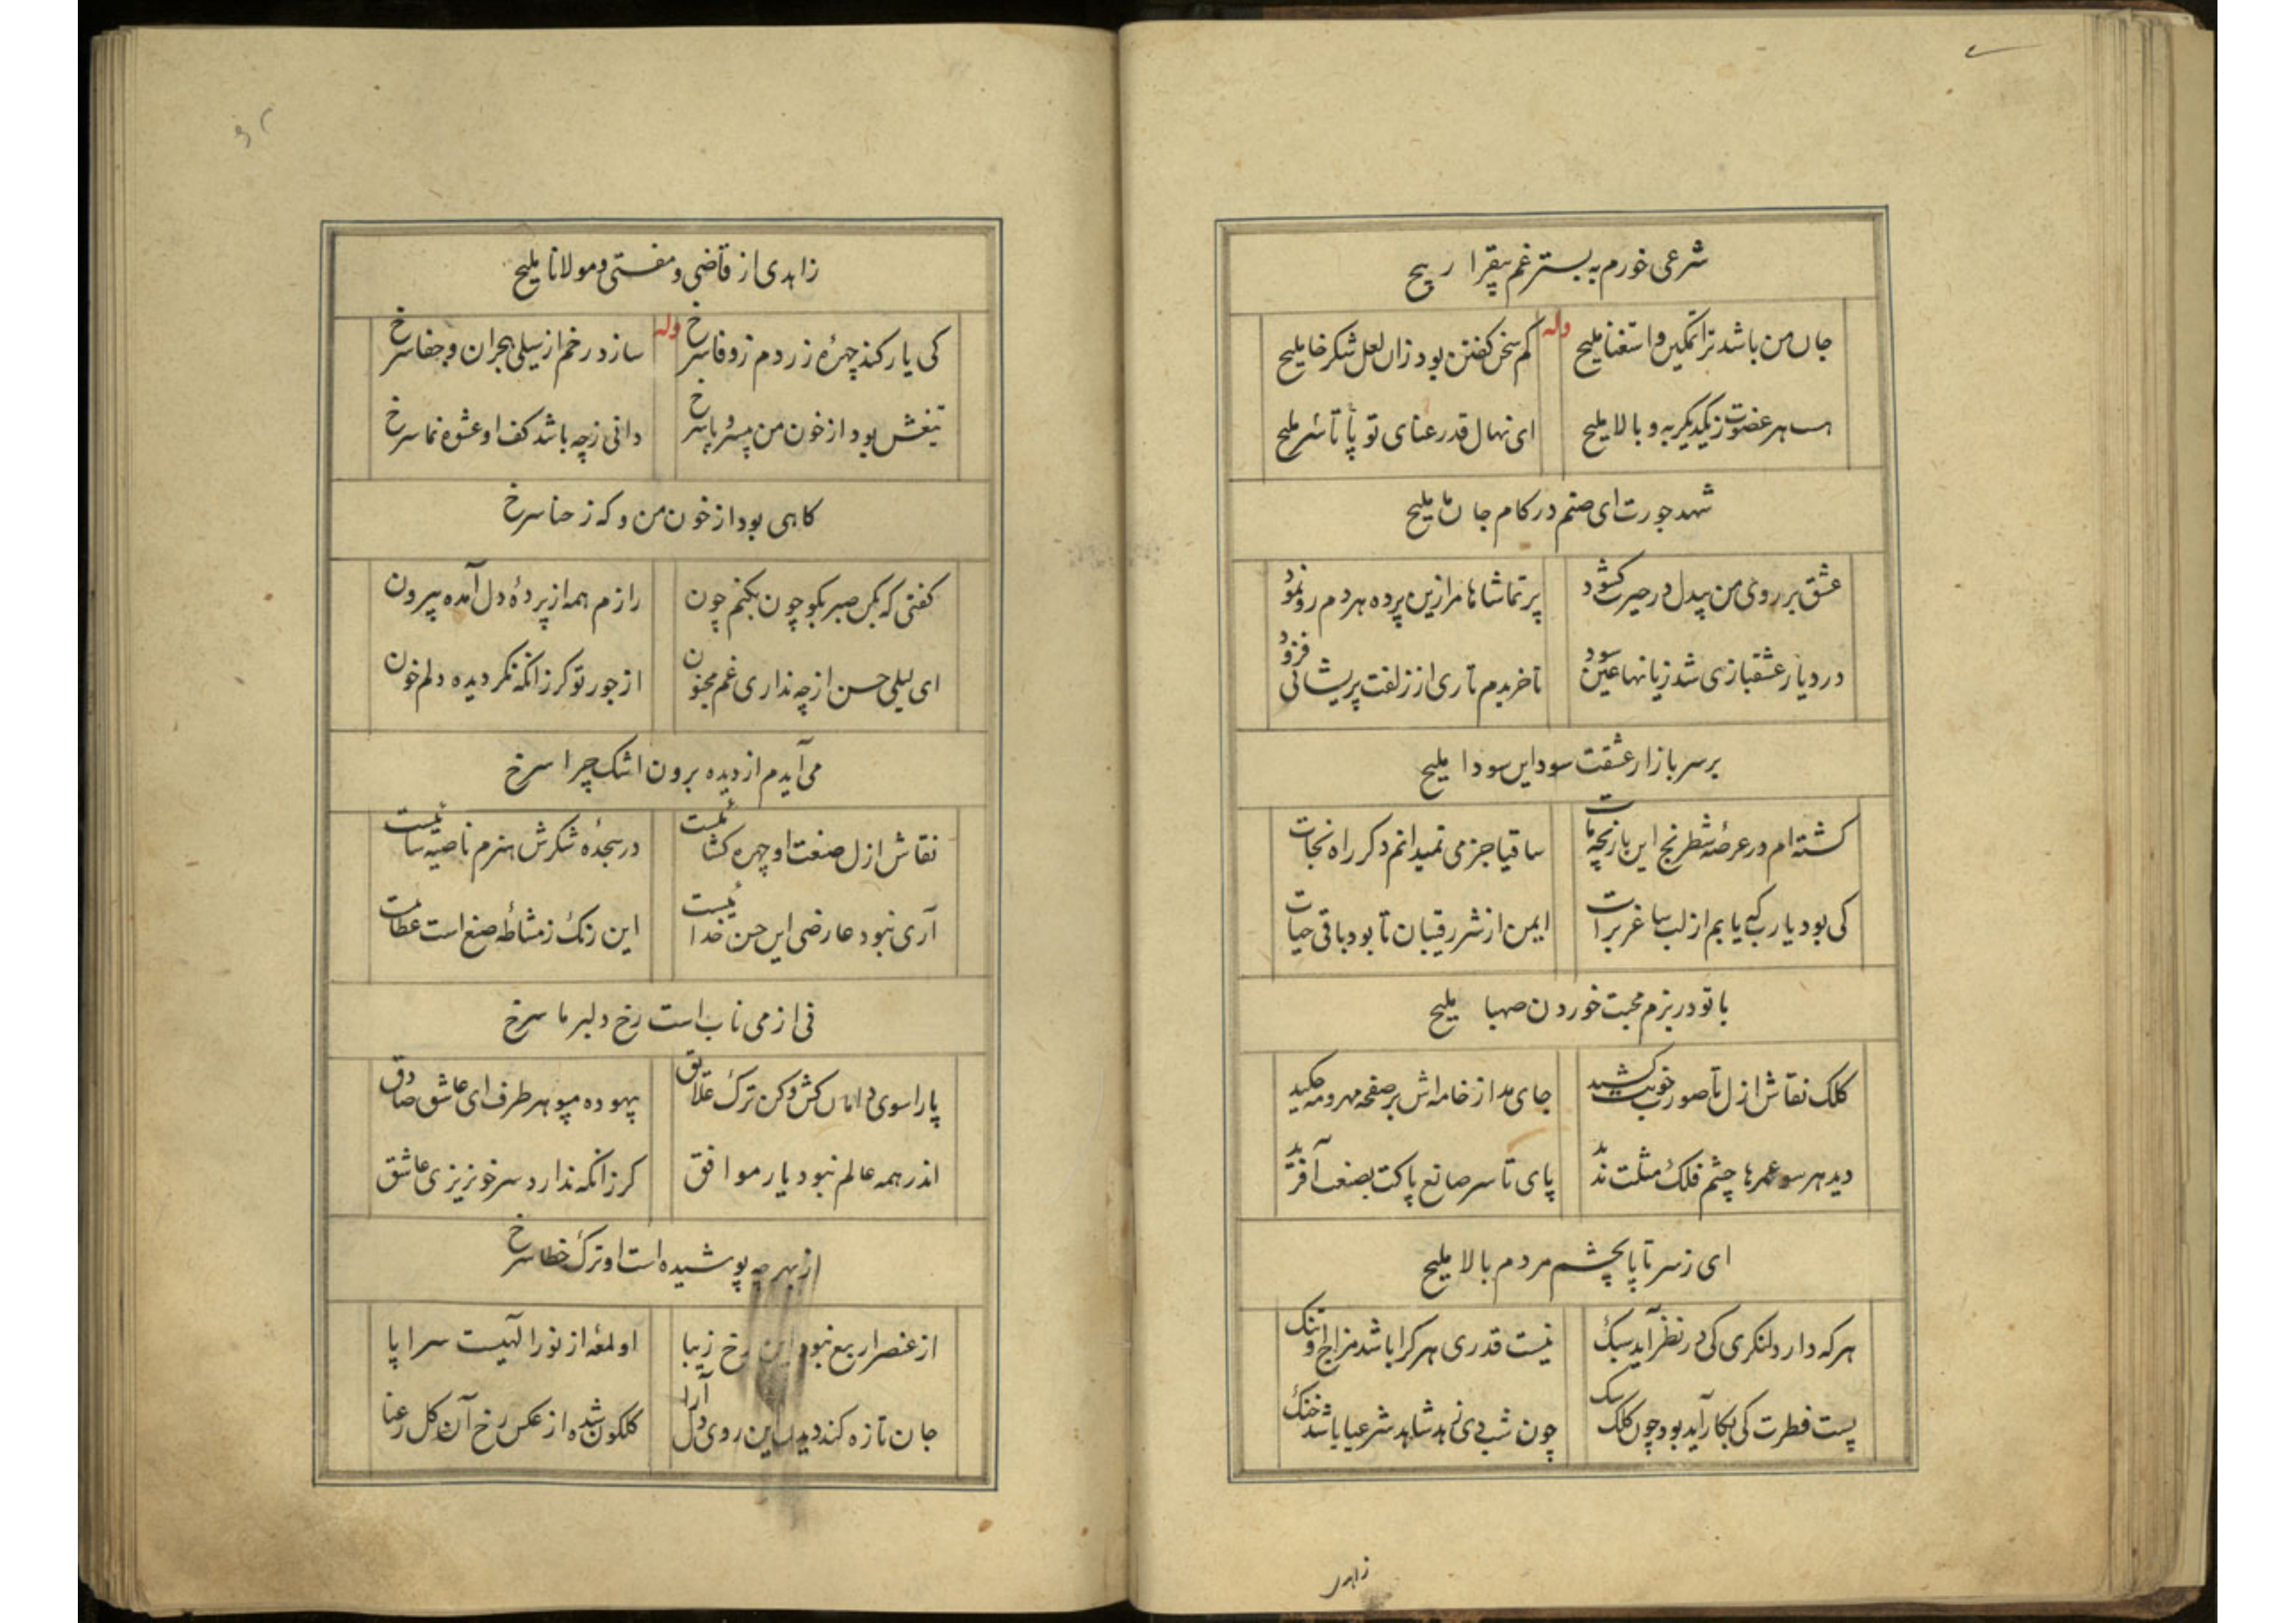 شرعی خورم به بستر غم بیقرار یح
جان من باشد ترا تمکین و استغنا ملیح
وله
کم سخن کفتن بود زان لعل شکرخا ملیح
هست هر عضوت زیکدیکر به و بالا ملیح
ای نهال قد رعنای تو پا تا سر ملیح
شهد جورت ای صنم در کام جان ما ملیح
عشق بر روی من بیدل در حیرت کشود
پر تماشاها مرا زین پرده هر دم رو نمود
در دیار عشقبازی شد زیانها عین سود
تا خریدم تاری از زلفت پریشانی فزود
بر سر بازار عشقت سود این سودا ملیح
کشته ام در عرصهٔ شطرنج این بازیچه مات
ساقیا جز می نمیدانم دکر راه نجات
کی بود یارب که یابم از لب ساغر برات
ایمن از شر رقیبان تا بود باقی حیات
با تو در بزم محبت خوردن صهبا ملیح
کلک نقاش ازل تا صورت خوبت کشید
جای مد از خامه اش بر صفحه مهر و مه چکید
دید هر سو عمرها چشم فلک مثلت ندید
پای تا سر صانع پاکت بصنعت آفرید
ای ز سر تا پا بچشم مردم بالا ملیح
هر که دارد لنکری کی در نظر آید سبک
نیست قدری هر کرا باشد مزاج او تنک
پست فطرت کی بکار آید بود چون کلک سک
چون شب دی زهد شاهد شرعیا باشد خنک
زاهدی
زاهدی از قاضی و مفتی و مولانا ملیح
کی یار کند چهرهٔ زردم ز وفا سرخ
وله
سازد رخم از سیلی هجران و جفا سرخ
تیغش بود از خون من بیسر و پا سرخ
دانی ز چه باشد کف او عشوه نما سرخ
کاهی بود از خون من و که ز حنا سرخ
کفتی که بکن صبر بکو چون بکنم چون
رازم همه از پردهٔ دل آمده بیرون
ای لیلی حسن از چه نداری غم مجنون
از جور تو کر زانکه نکردیده دلم خون
می آیدم از دیده برون اشک چرا سرخ
نقاش ازل صنعت او چهره کشائیست
در سجدهٔ شکرش هنرم ناصیه سائیست
آری نبود عارضی این حسن خدائیست
این رنک ز مشاطهٔ صنع است عطائیست
نی از می ناب است رخ دلبر ما سرخ
پا را سوی دامان کش و کن ترک علائق
بیهوده مپو هر طرف ای عاشق صادق
اندر همه عالم نبود یار موافق
کر زانکه ندارد سر خونریزی عاشق
از بهر چه پوشیده است او ترک خطا سرخ
از عنصر اربع نبود این رخ زیبا
او لمعهٔ از نور الهیست سراپا
جان تازه کند دیدن این روی دل آرا
کلکون شده از عکس رخ آن کل رعنا